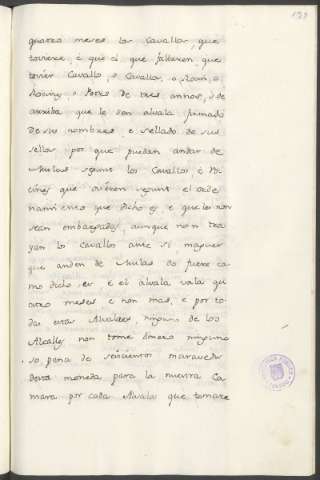 quatro meses los Cavallos, que
toviere, é que el que fallaren que
tovier Cavallo, o Cavallos, o Rocin, o
Rocines, o Potro de tres annos, o de
arriba que le den alvala firmado
de sus nombres, e sellado de sus
sellos por que puedan andar de
Mulas segunt los Cavallos é Ro
cines que ovieren segunt el orde
namiento que dicho es, e que los non
sean embargados, aunque non tra
yan los Cavallos ante si maguer
que anden de Mulas do fuere ca
mo dicho es, e el alvala vala qu
atro meses e non mas, e por to
das estas Alvalaes, ninguno de los
Alcalles non tome dinero ninguno
so pena de seiscientos maravedis
desta moneda para la nuestra Ca
mara por cada Alvala que tomare